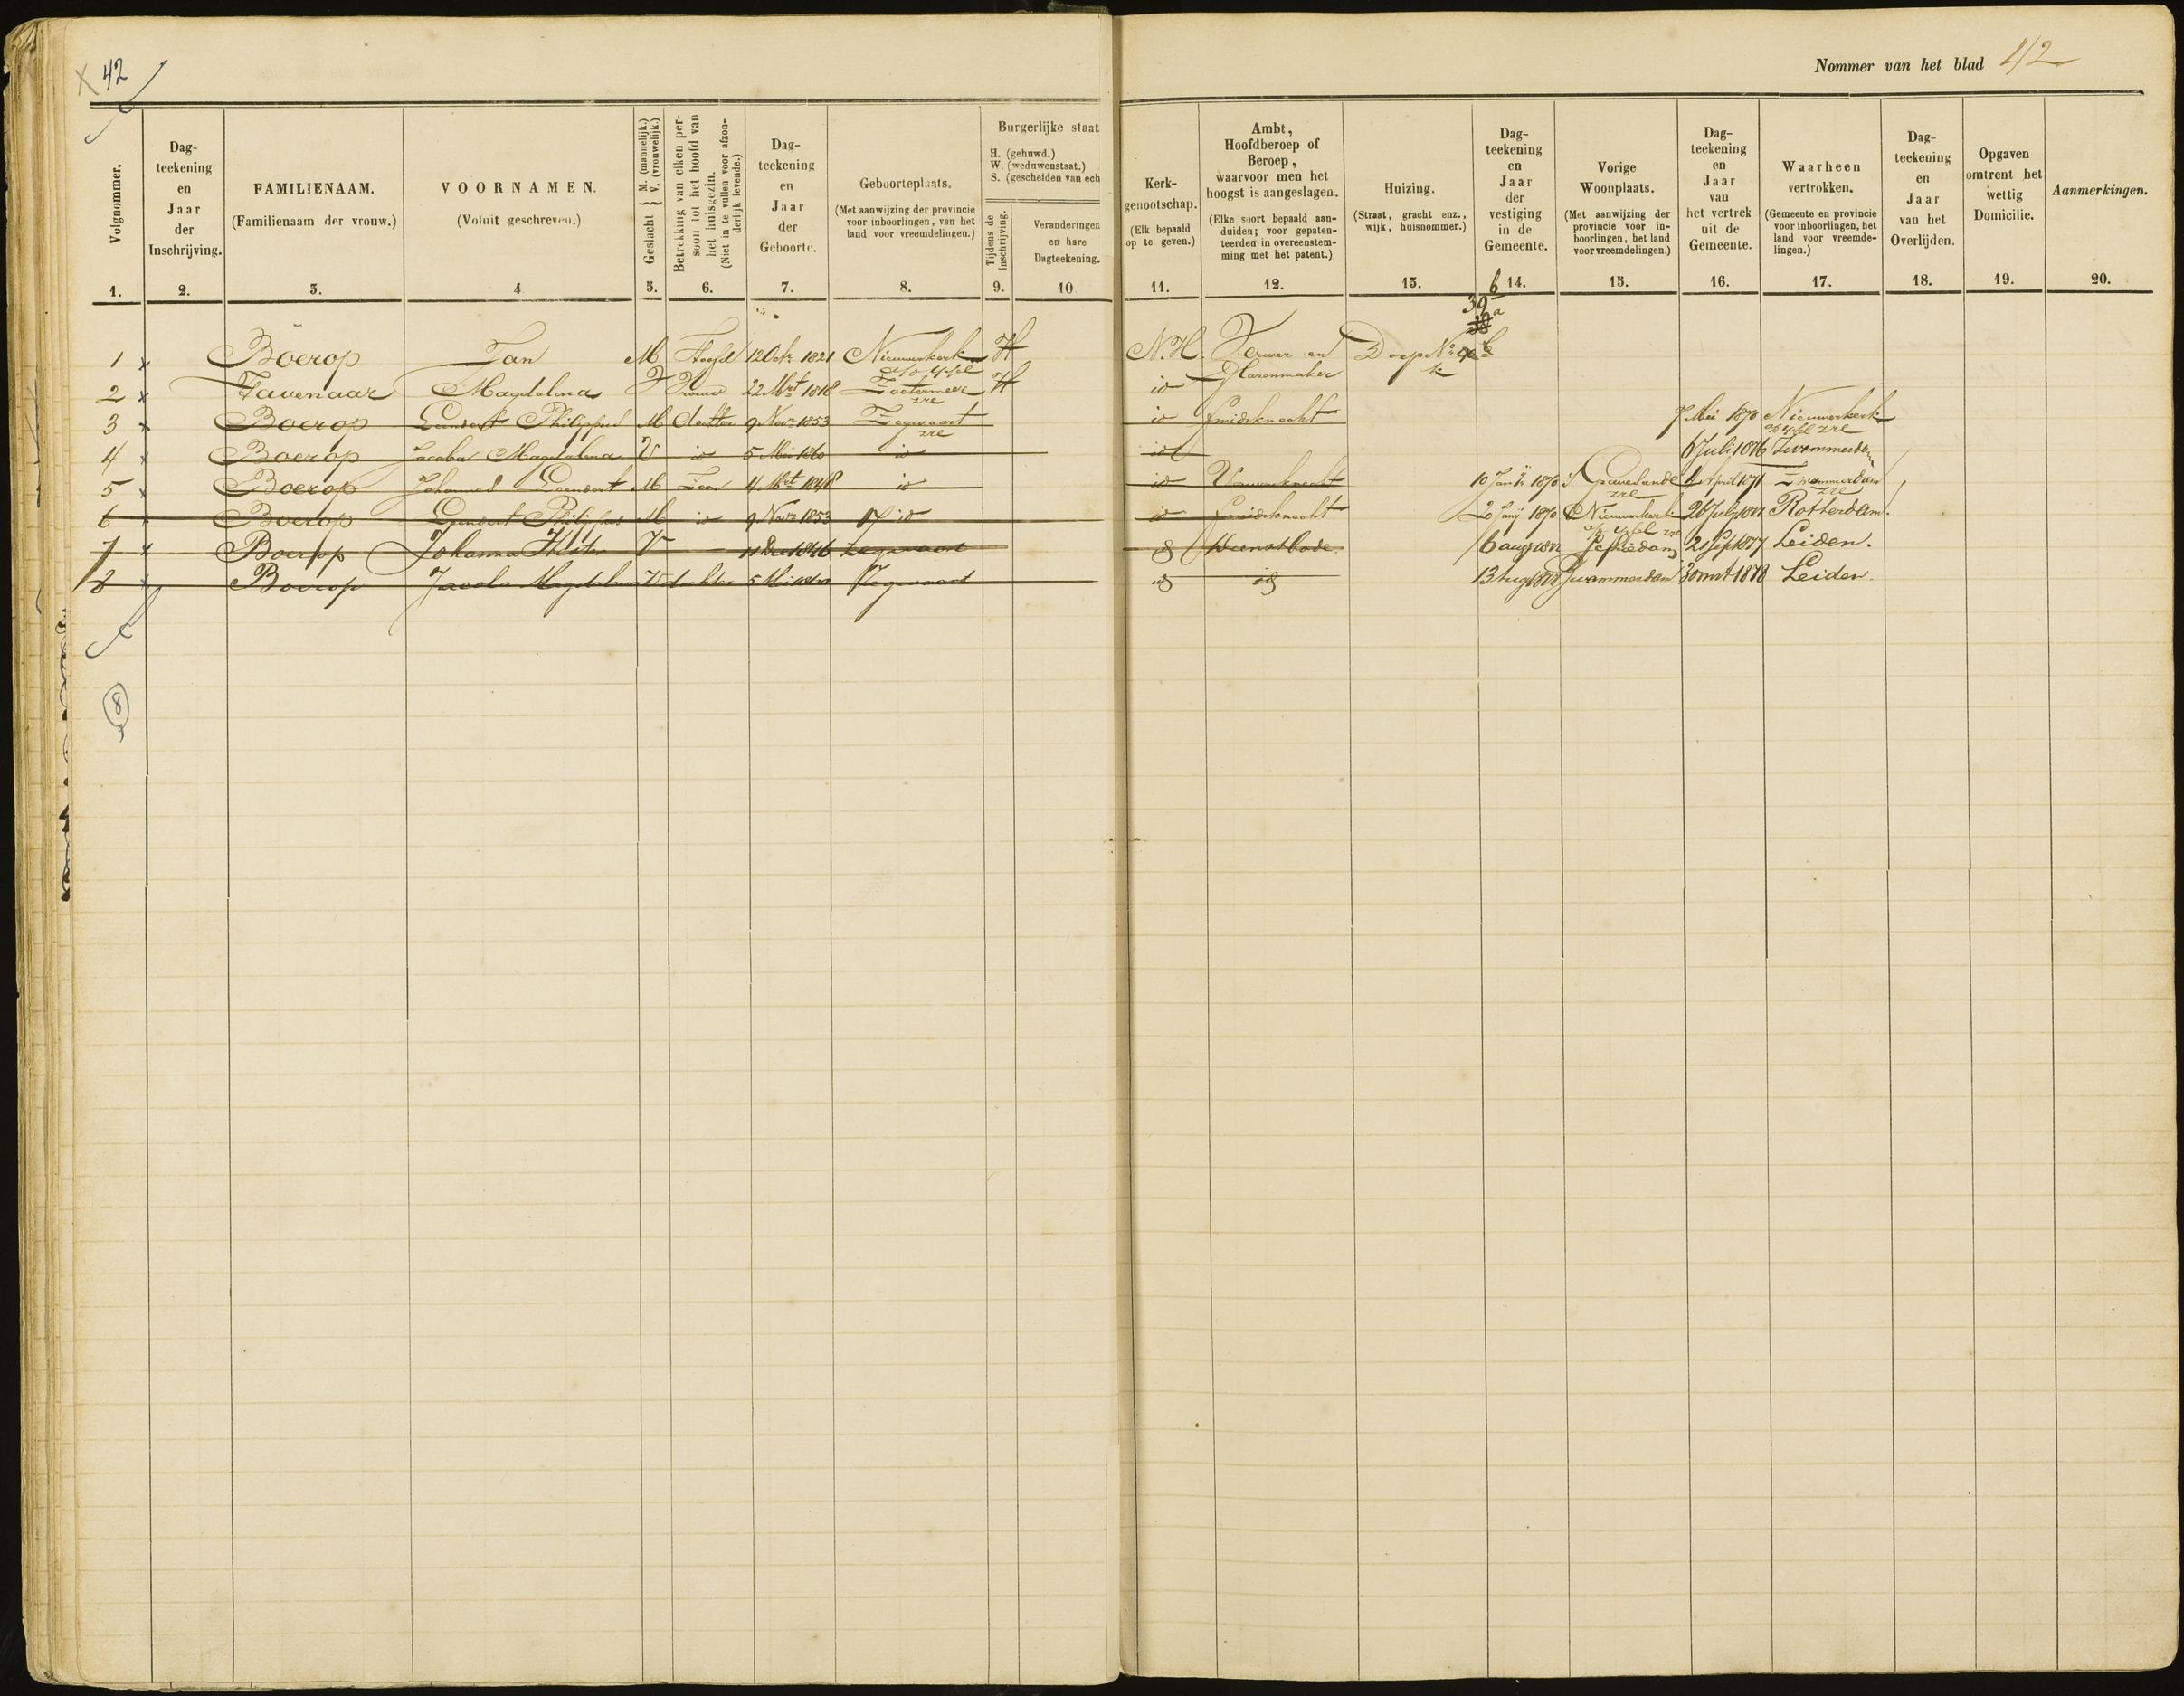 42
Nommer van het blad 42
Volgnommer.
Dag-
teekening
en
Jaar
der
Inschrijving.
FAMILIENAAM.
(Familienaam der vrouw.)
VOORNAMEN.
(Voluit geschreven.)
Geslacht { M. (mannelijk.)
V. (vrouwelijk.)
Betrekking van elken per-
soon tot het hoofd van
het huisgezin.
(Niet in te vullen voor afzon-
derlijk levende.)
Dag-
teekening
en
Jaar
der
Geboorte.
Geboorteplaats.
(Met aanwijzing der provincie
voor inboorlingen, van het
land voor vreemdelingen.)
Burgerlijke staat
H. (gehuwd.)
W. (weduwenstaat.)
S. (gescheiden van ech
Tijdens de
Inschrijving.
Veranderingen
en hare
Dagteekening.
Kerk-
genootschap.
(Elk bepaald
op te geven.)
Ambt,
Hoofdberoep of
Beroep,
waarvoor men het
hoogst is aangeslagen.
(Elke soort bepaald aan-
duiden; voor gepaten-
teerden in overeenstem-
ming met het patent.)
Huizing.
(Straat, gracht enz.,
wijk, huisnommer.)
Dag-
teekening
en
Jaar
der
vestiging
in de
Gemeente.
Vorige
Woonplaats.
(Met aanwijzing der
provincie voor in-
boorlingen, het land
voor vreemdelingen.)
Dag-
teekening
en
Jaar
van
het vertrek
uit de
Gemeente.
Waarheen
vertrokken.
(Gemeente en provincie
voor inboorlingen, het
land voor vreemde-
lingen.)
Dag-
teekening
en
Jaar
van het
Overlijden.
Opgaven
omtrent het
wettig
Domicilie.
Aanmerkingen.
1. 2. 3. 4 5. 6. 7. 8. 9. 10 11. 12. 13. 14. 15. 16. 17. 18. 19. 20.
6
39 a
1 x Boerop Jan M Hoofd 12 Octr 1821 Nieuwerkerk H N.H. Verwer en Dorp No
a/d Yssel Glazenmaker
2 x Tavenaar Magdalena V Vrouw 22 Mrt 1818 Zoetermeer H id
zre
3 x Boerop Leendert Philippus M 9 Novr 1853 Zegwaart id Smidsknecht 7 Mei 1870 Nieuwerkerk
zre a/d Yssel zre
4 x Boerop Jacoba Magdalena V id 5 Mei 1860 id id 6 Juli 1876 Zwammerdam
5 x Boerop Johannes Leendert M Zoon 4 Mrt 1848 id id Verwersknecht 10 Jan 1870 's Gravesande April 1871 Zwammerdam
zre zre
6 x Boerop Leendert Philippus M id 9 Novr 1853 id id Smidsknecht 20 1870 Nieuwerkerk 26 July Rotterdam.
a/d Yssel zre
7 x Boerop Johanna V 11 Dec 1846 Zegwaart id Dienstbode. 6 aug Schiedam 21 Sept 1877 Leiden.
8 x Boerop Jacoba Magdalena V dochter 5 Mei 1860 Zegwaart id id 13 Aug Zwammerdam 30 mrt 1878 Leiden.
8